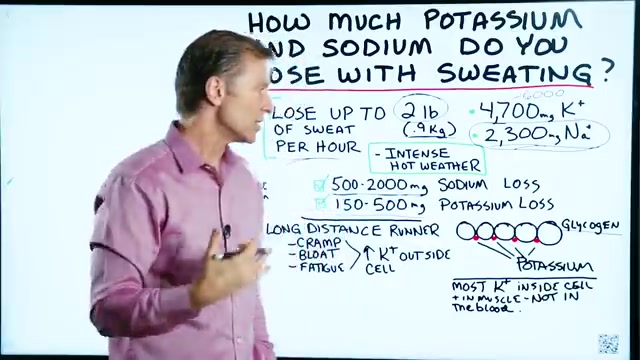 HOW MUCH POTASSIUM
AND SODIUM DO YOU
LOSE WITH SWEATING?
LOSE UP TO 2 lb
OF SWEAT (.9 Kg)
PER HOUR
- INTENSE
HOT WEATHER
6000
• 4,700mg K+
• 2,300mg Na+
500-2000mg SODIUM LOSS
150-500mg POTASSIUM LOSS
LONG DISTANCE RUNNER
- CRAMP
- BLOAT
- FATIGUE
↑ K+ OUTSIDE
CELL
GLYCOGEN
POTASSIUM
MOST K+ INSIDE CELL
+ IN MUSCLE - NOT IN
The blood.